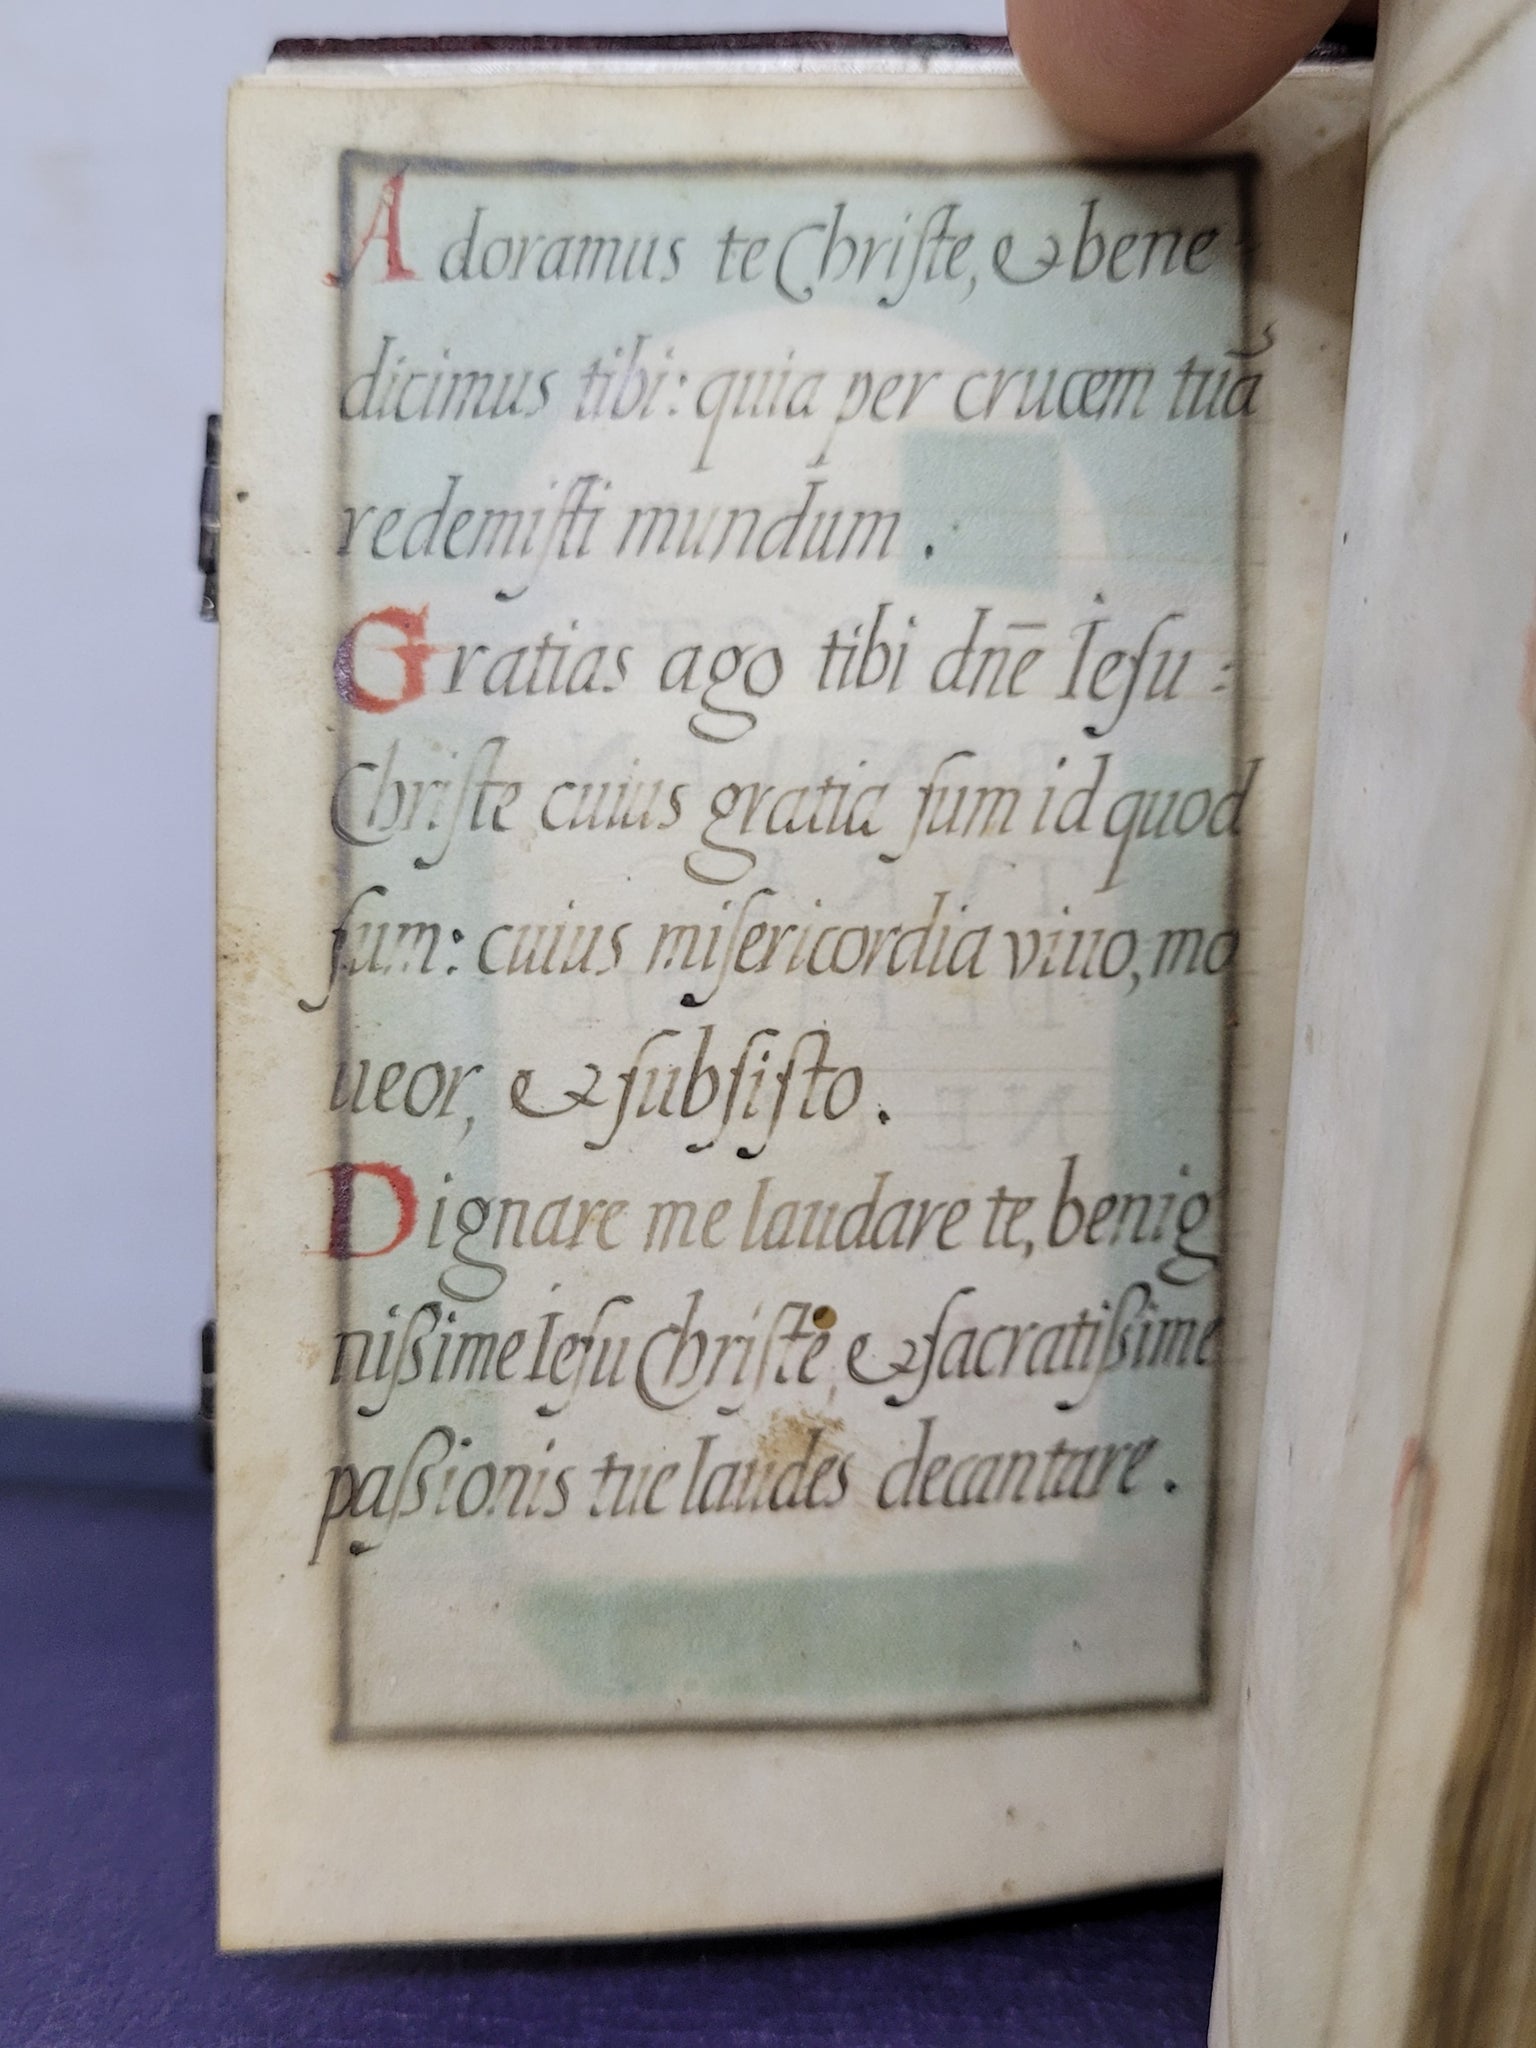 Adoramus te Chriſte, & bene
dicimus tibi: quia per crucem tuā
redemiſti mundum.
Gratias ago tibi dn̄e Ieſu:
Chriſte cuius gratia ſum id quod
ſum: cuius miſericordia viuo, mo
ueor, & ſubſiſto.
Dignare me laudare te, benig
nißime Ieſu Chriſte, & ſacratißime
paßionis tue laudes decantare.